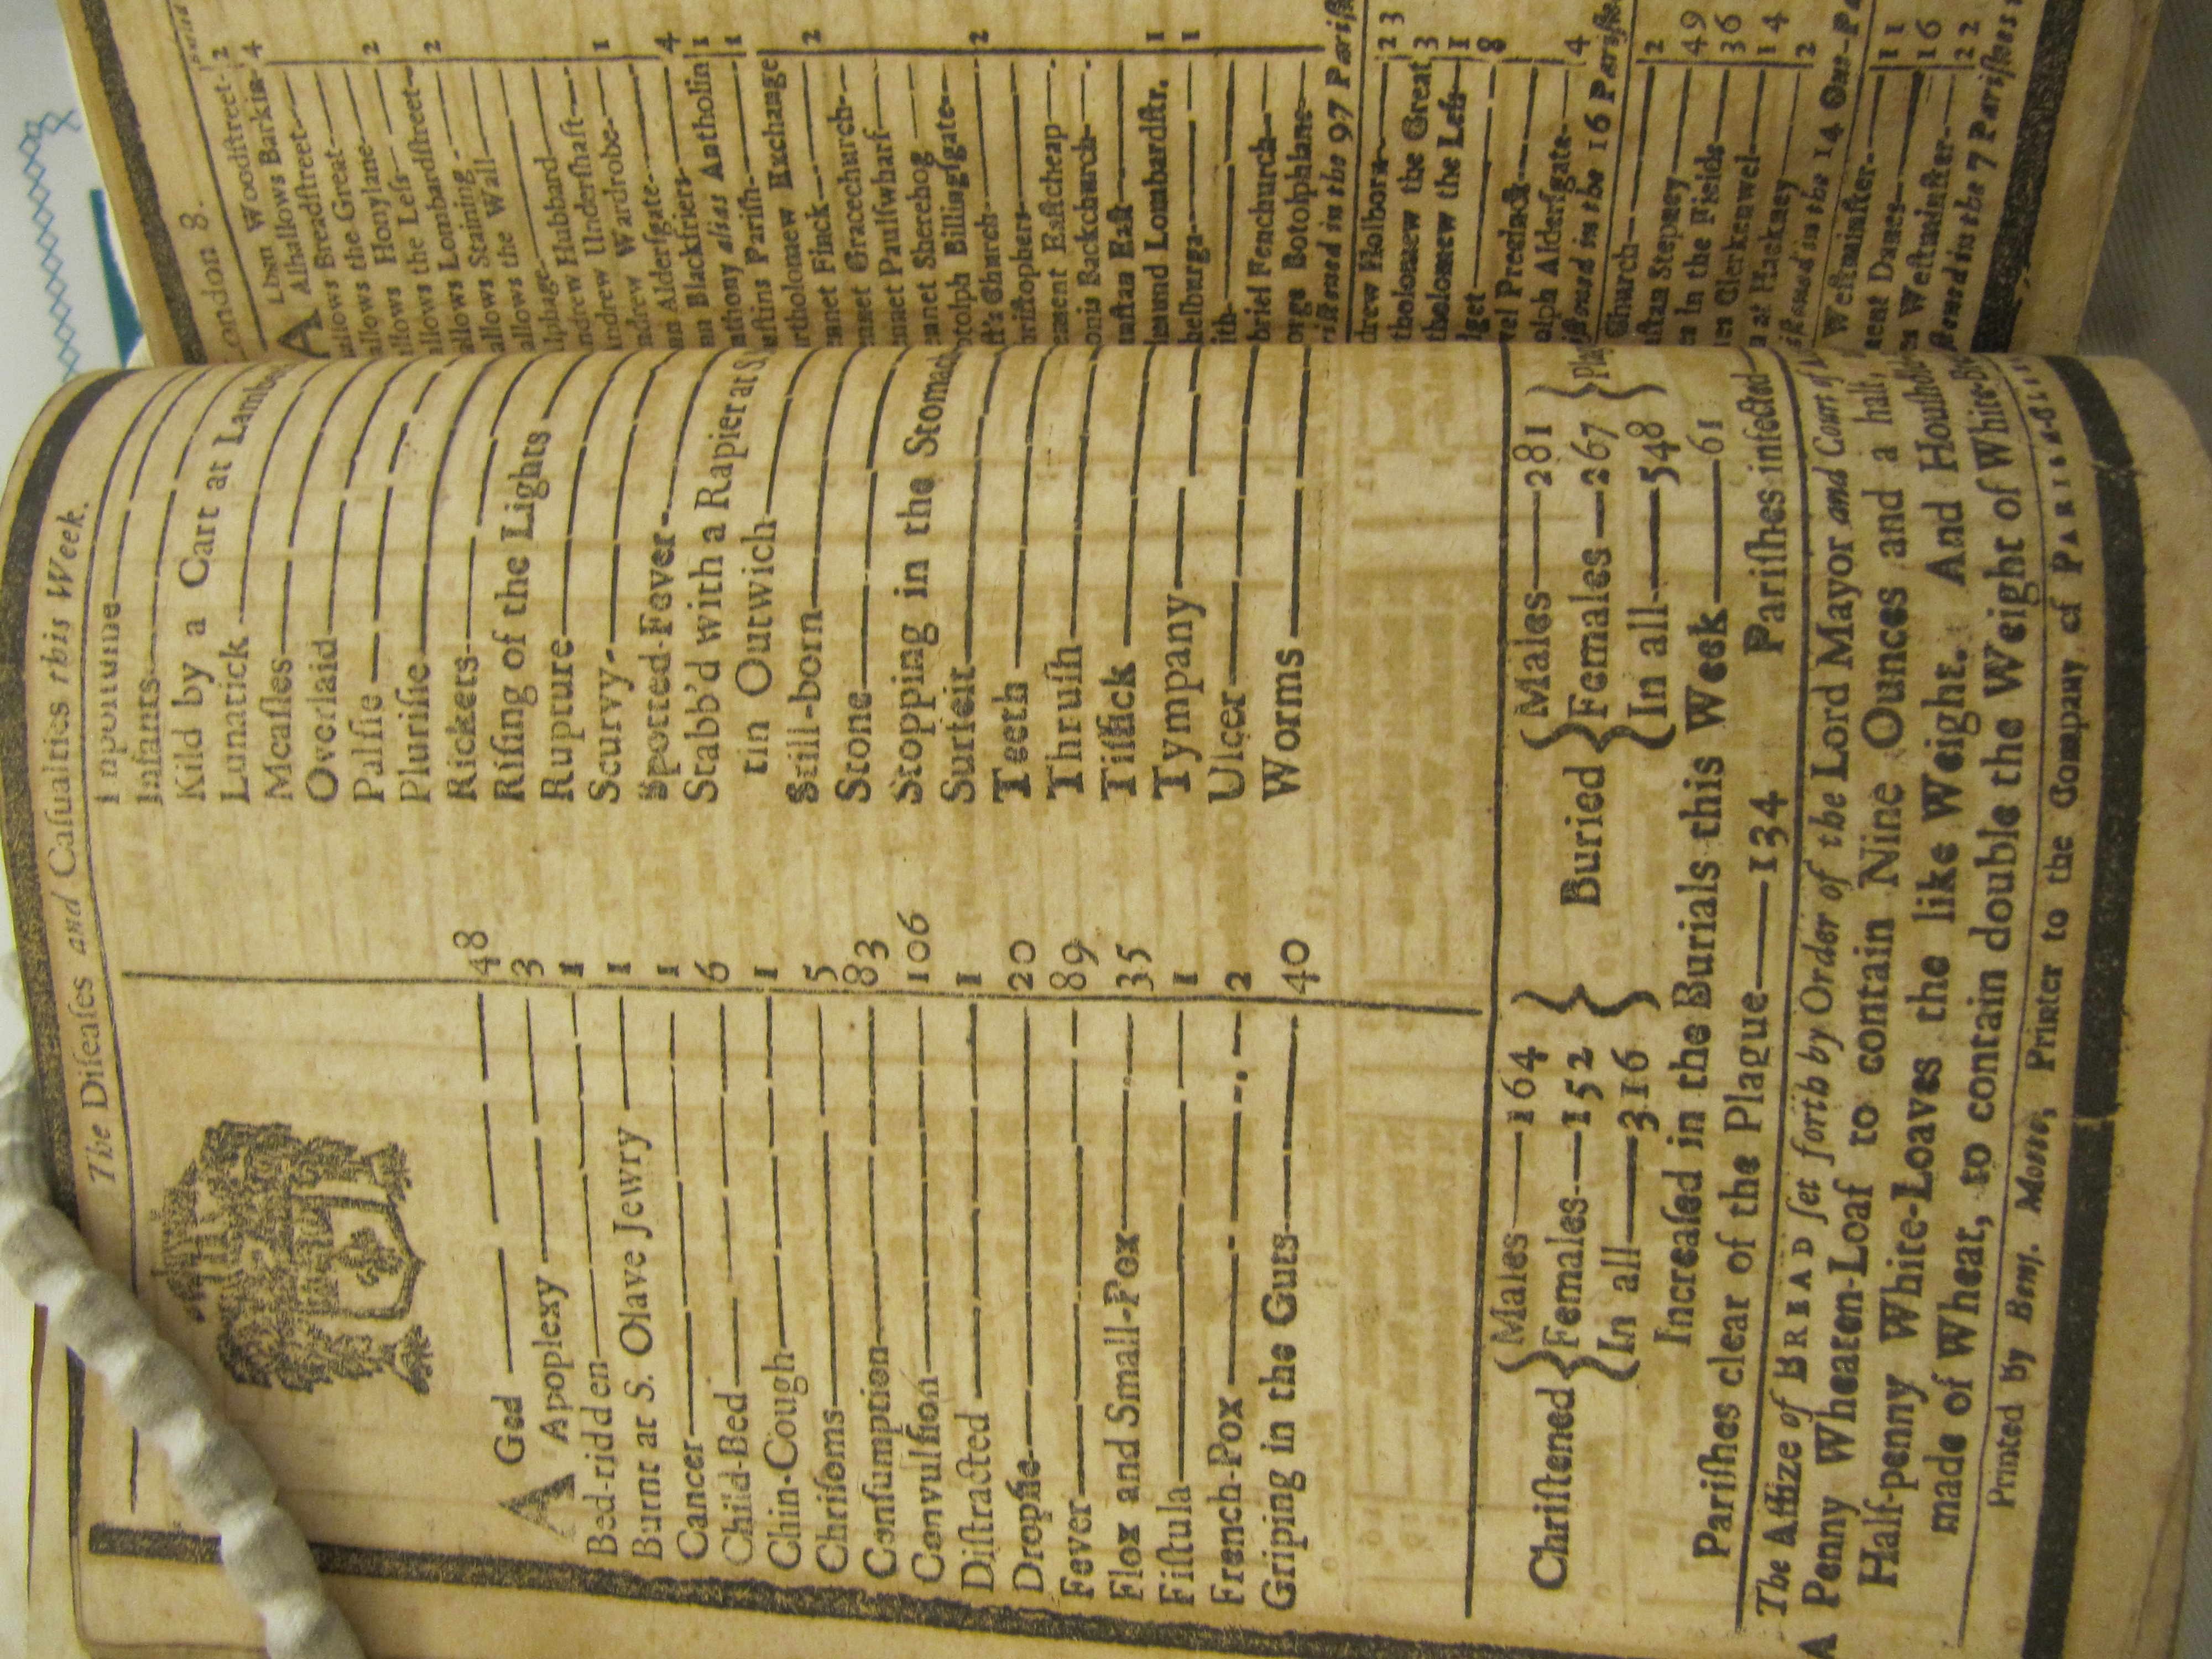 The Diſeaſes and Caſualties this Week.
AGed 48
Apoplexy 3
Bed-ridden 1
Burnt at S. Olave Jewry 1
Cancer 1
Child-Bed 6
Chin-Cough 1
Chriſoms 5
Conſumption 83
Convulſion 106
Diſtracted 1
Dropſie 20
Fever 89
Flox and Small-Pox 35
Fiſtula 1
French-Pox 2
Griping in the Guts 40
Impoſtume
Infants
Kild by a Cart at
Lunatick
Meaſles
Overlaid
Palſie
Pluriſie
Rickets
Riſing of the Lights
Rupture
Scurvy
Spotted-Fever
Stabb'd with a Rapier at
tin Outwich
Still-born
Stone
Stopping in the Stomach
Surfeit
Teeth
Thruſh
Tiſſick
Tympany
Ulcer
Worms
Chriſtened { Males 164
Females 152
In all 316 }
Buried { Males 281
Females 267
In all 548 }
Increaſed in the Burials this Week 61
Pariſhes clear of the Plague 134 Pariſhes infected
The Aſſize of BREAD ſet forth by Order of the Lord Mayor and Court of
A Penny Wheaten-Loaf to contain Nine Ounces and a half,
Half-penny White-Loaves the like Weight. And Houſhold
made of Wheat, to contain double the Weight of White-
Printed by Benj. Motte, Printer to the Company of
London 8.
Alban Woodſtreet 2
Alhallows Barkin 4
Alhallows Breadſtreet
allows the Great
allows Honylane 2
allows the Leſs
allows Lombardſtreet 2
allows Staining
allows the Wall
lphage
ndrew Hubbard
ndrew Underſhaft 1
ndrew Wardrobe
nn Alderſgate 4
nn Blackfriers 1
nthony alias Antholin 1
uſtins Pariſh
rtholomew Exchange
nnet Finck 2
nnet Gracechurch
nnet Paulſwharf
nnet Sherehog
otolph Billingſgate
ſt's Church 2
riſtophers
ement Eaſtcheap
onis Backchurch
unſtan Eaſt
mund Lombardſtr. 1
helburga 1
ith
briel Fenchurch
orge Botolphlane
riſtened in the 97 Pariſh
drew Holborn 23
tholomew the Great 3
tholomew the Leſs 1
dget 8
wel Precinct
olph Alderſgate 4
iſtened in the 16 Pariſhe
Church 2
nſtan Stepney 49
es in the Fields 36
es Clerkenwel 14
n at Hackney 2
iſtened in the 14 Out-Pa
Weſtminſter
ment Danes 11
Weſtminſter 16
22
ſtened in the 7 Pariſhes